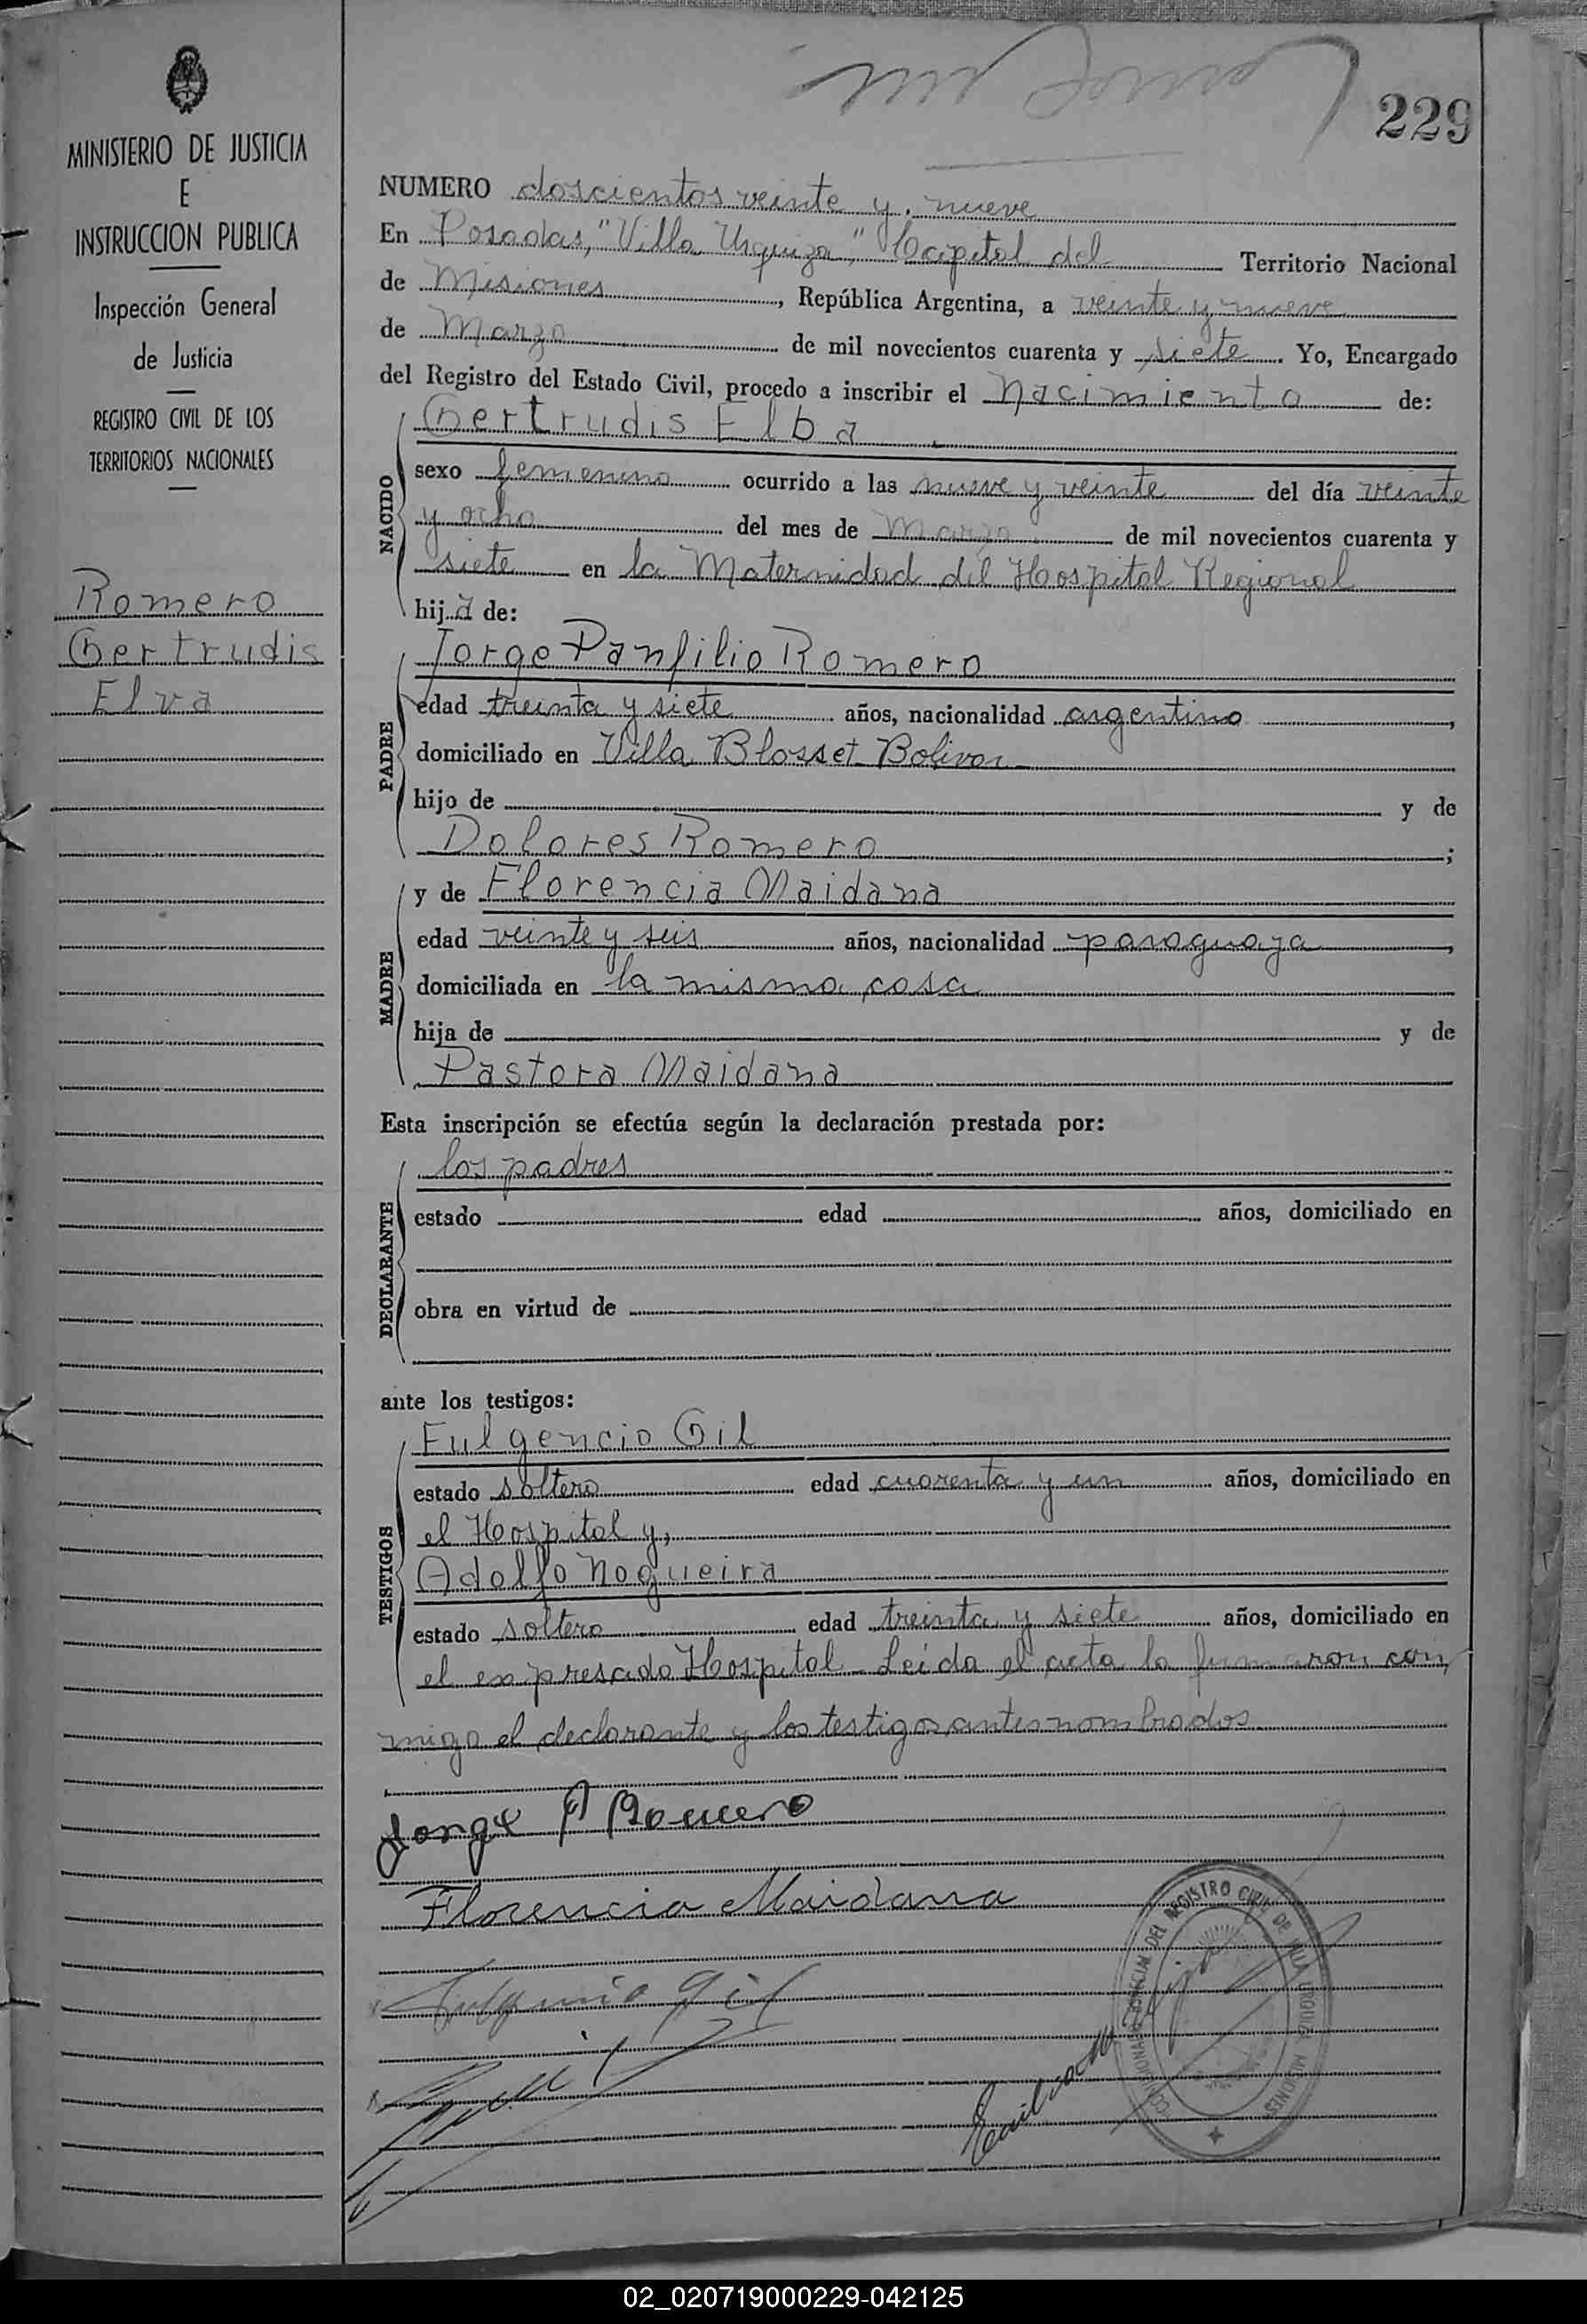 229
MINISTERIO DE JUSTICIA
E
INSTRUCCION PUBLICA
Inspección General
de Justicia
REGISTRO CIVIL DE LOS
TERRITORIOS NACIONALES
Romero
Gertrudis
Elva
NUMERO doscientos veinte y nueve
En Posadas, "Villa Urquiza," Capital del Territorio Nacional
de Misiones, República Argentina, a veinte y nueve
de Marzo de mil novecientos cuarenta y siete. Yo, Encargado
del Registro del Estado Civil, procedo a inscribir el nacimiento de:
NACIDO
Gertrudis Elba
sexo femenino ocurrido a las nueve y veinte del día veinte
y ocho del mes de Marzo de mil novecientos cuarenta y
siete en la Maternidad del Hospital Regional
hija de:
PADRE
Jorge Panfilio Romero
edad treinta y siete años, nacionalidad argentino,
domiciliado en Villa Blosset Bolivar
hijo de y de
Dolores Romero;
MADRE
y de Florencia Maidana
edad veinte y seis años, nacionalidad paraguaya,
domiciliada en la misma casa
hija de y de
Pastora Maidana
Esta inscripción se efectúa según la declaración prestada por:
DECLARANTE
los padres
estado edad años, domiciliado en
obra en virtud de
ante los testigos:
TESTIGOS
Fulgencio Gil
estado soltero edad cuarenta y un años, domiciliado en
el Hospital y,
Adolfo Nogueira
estado soltero edad treinta y siete años, domiciliado en
el expresado Hospital Leida el acta la firmaron con
migo el declarante y los testigos antes nombrados
Jorge P Romero
Florencia Maidana
Fulgencio Gil
DEL REGISTRO CIVIL DE VILLA URQUIZA MISIONES
02_020719000229-042125